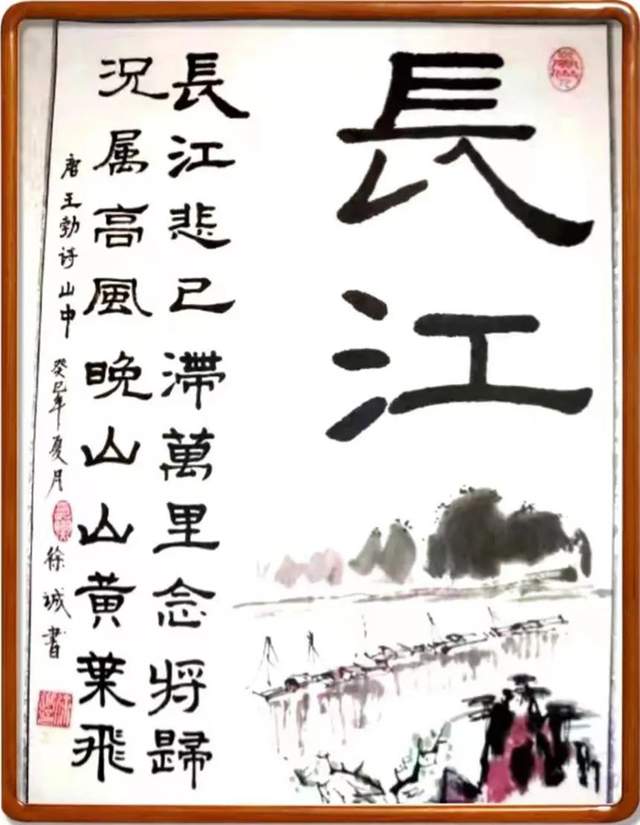 長江
長江悲已滯萬里念将歸
況属高風晚山山黄葉飛
唐王勃诗山中 癸巳年夏月
徐诚書